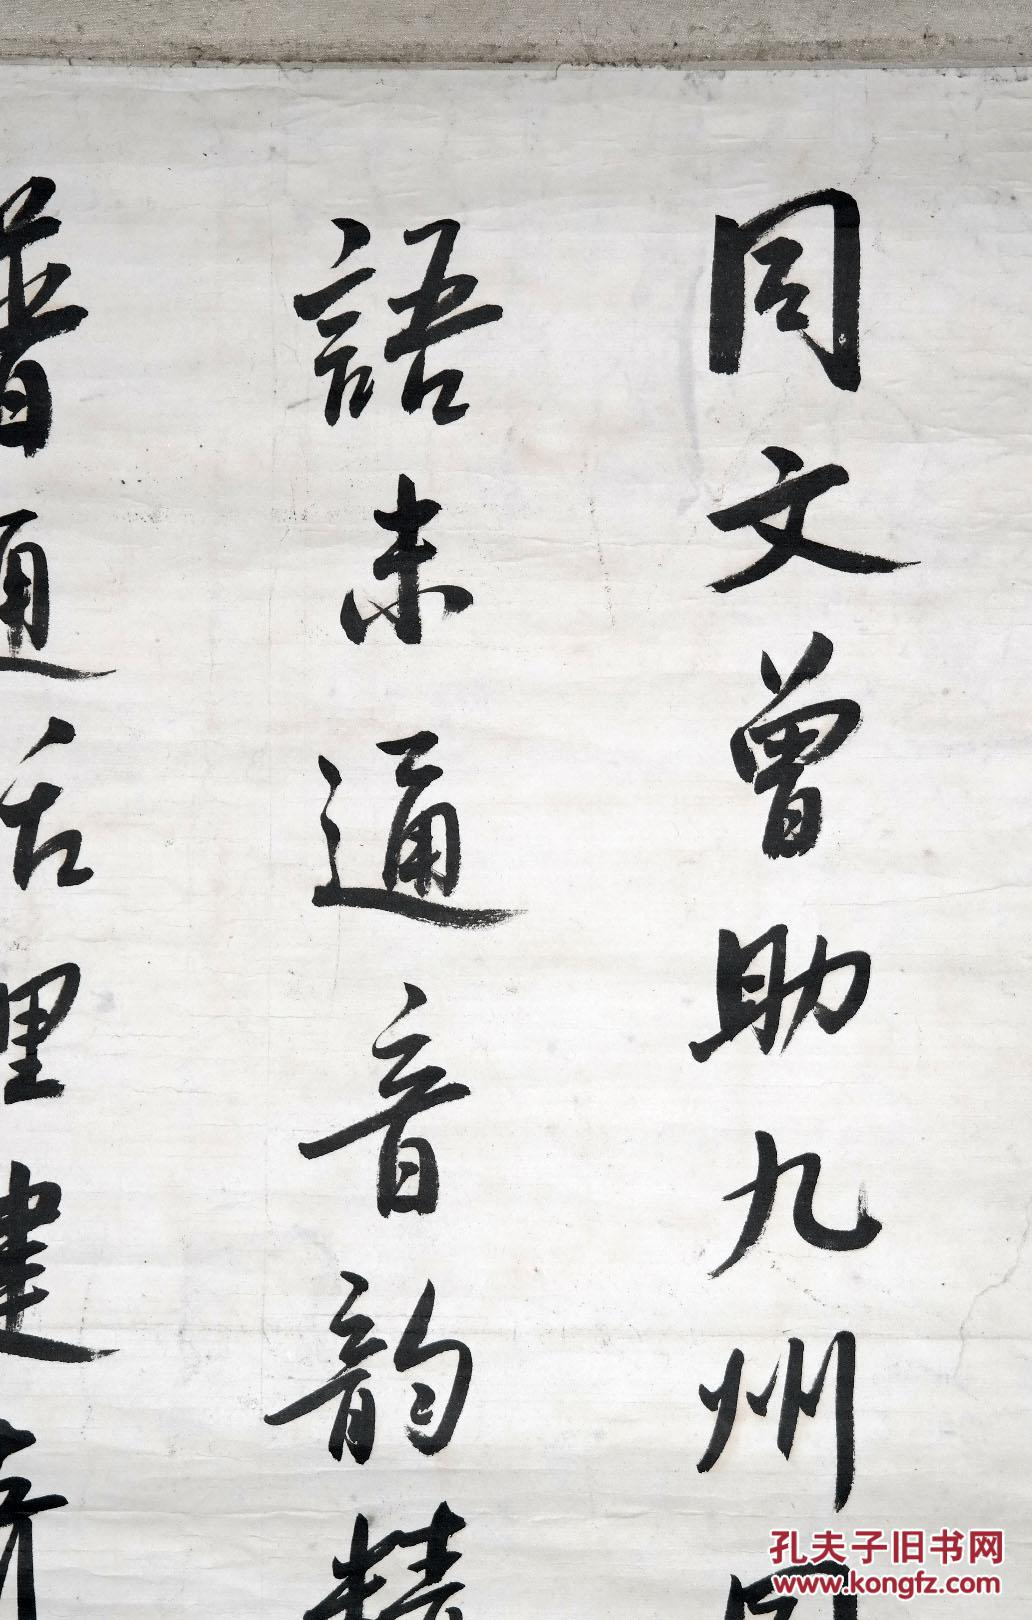 同文曾助九州同
語未通音韵精
普通话里建奇
孔夫子旧书网
www.kongfz.com